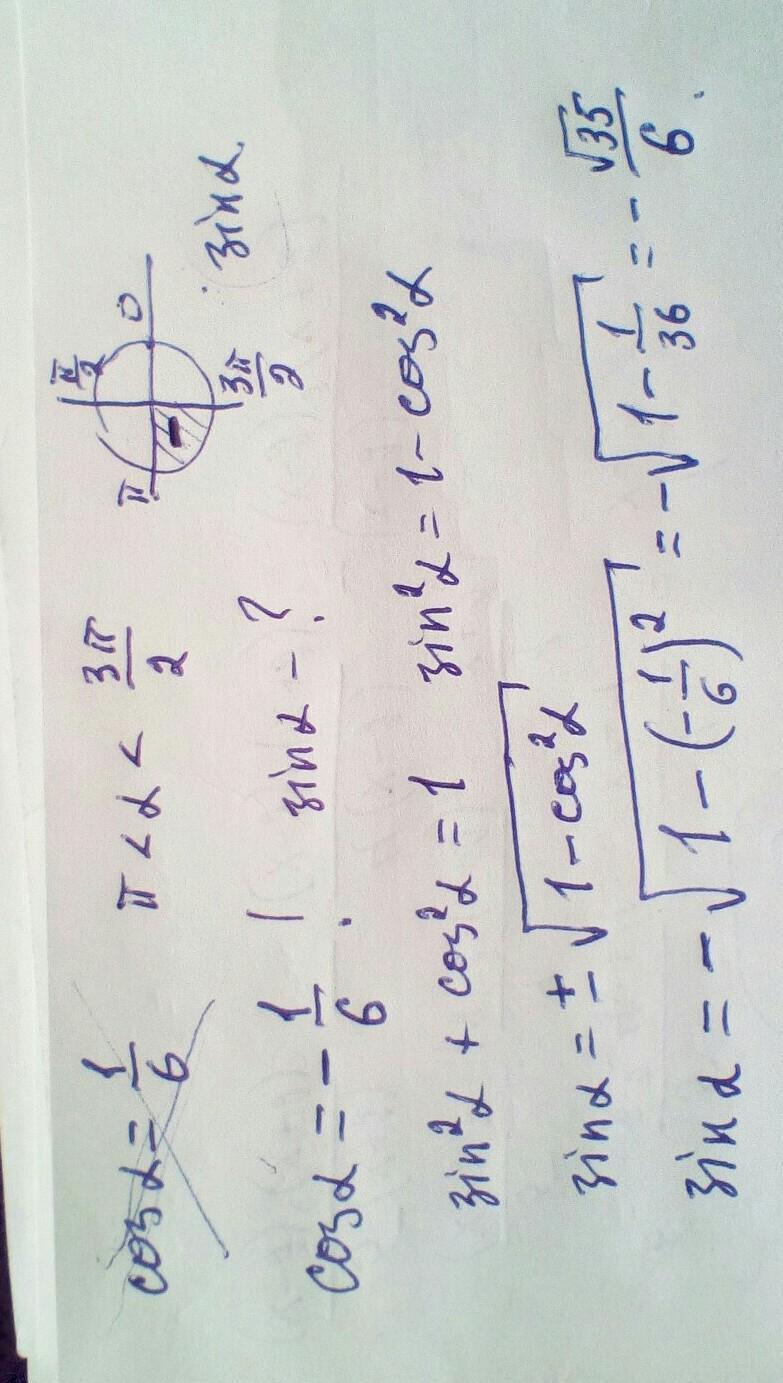 cosα = 1/6 π < α < 3π/2
π/2
π 0
-
3π/2
sinα.
cosα = -1/6. | sinα - ?
sin²α + cos²α = 1 sin²α = 1 - cos²α
sinα = ±√(1 - cos²α)
sinα = -√(1 - (-1/6)²) = -√(1 - 1/36) = -√35/6.